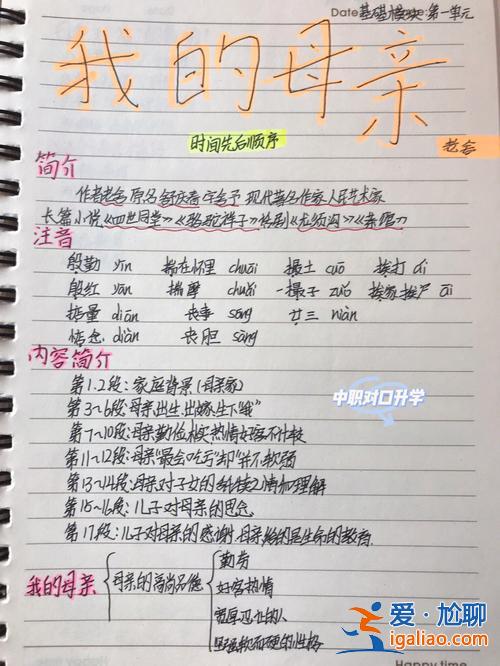 Date 基础模块 第一单元
我的母亲
时间先后顺序
老舍
简介
作者老舍 原名 舒庆春 字舍予 现代著名作家 人民艺术家
长篇小说《四世同堂》《骆驼祥子》话剧《龙须沟》《茶馆》
注音
殷勤 yīn 揣在怀里 chuāi 撮土 cuō 挨打 ái
殷红 yān 揣摩 chuǎi 一撮子 zuǒ 挨家挨户 āi
掂量 diān 丧事 sāng 廿三 niàn
惦念 diàn 丧胆 sàng
内容简介
第1.2段:家庭背景(母亲家)
第3~6段:母亲出生,出嫁,生下"我"
第7~10段:母亲勤俭诚实热情好客不计较
第11~12段:母亲"最会吃亏"却"并不软弱
中职对口升学
第13~14段:母亲对子女的 之情和理解
第15~16段:儿子对母亲的思念
第17段:儿子对母亲的感谢,母亲给的是生命的教育
我的母亲
母亲的高尚品德
勤劳
好客热情
宽厚 的人
坚强软而硬的性格
爱·尴聊
igaliao.com
Happy time